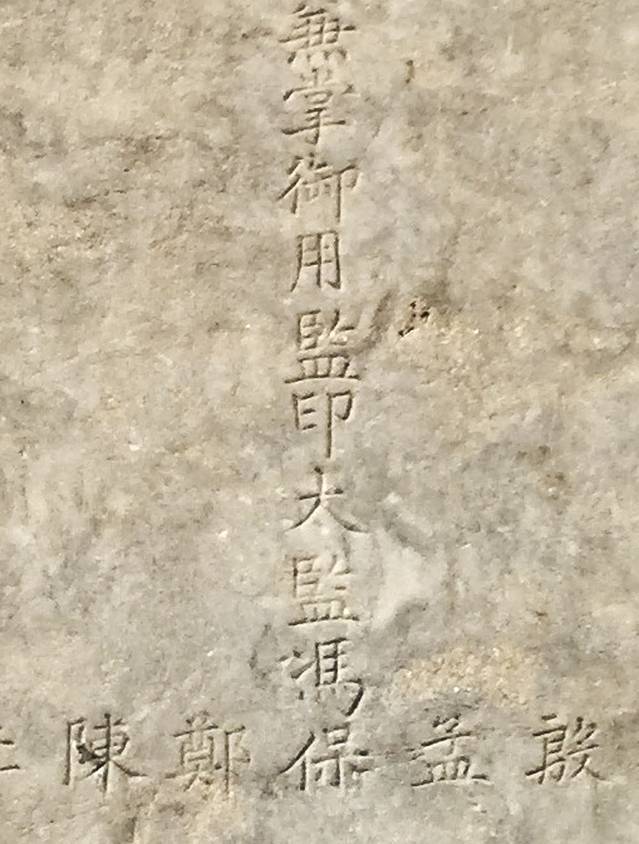 殷
孟
兼掌御用監印太監馮保
鄭
陳